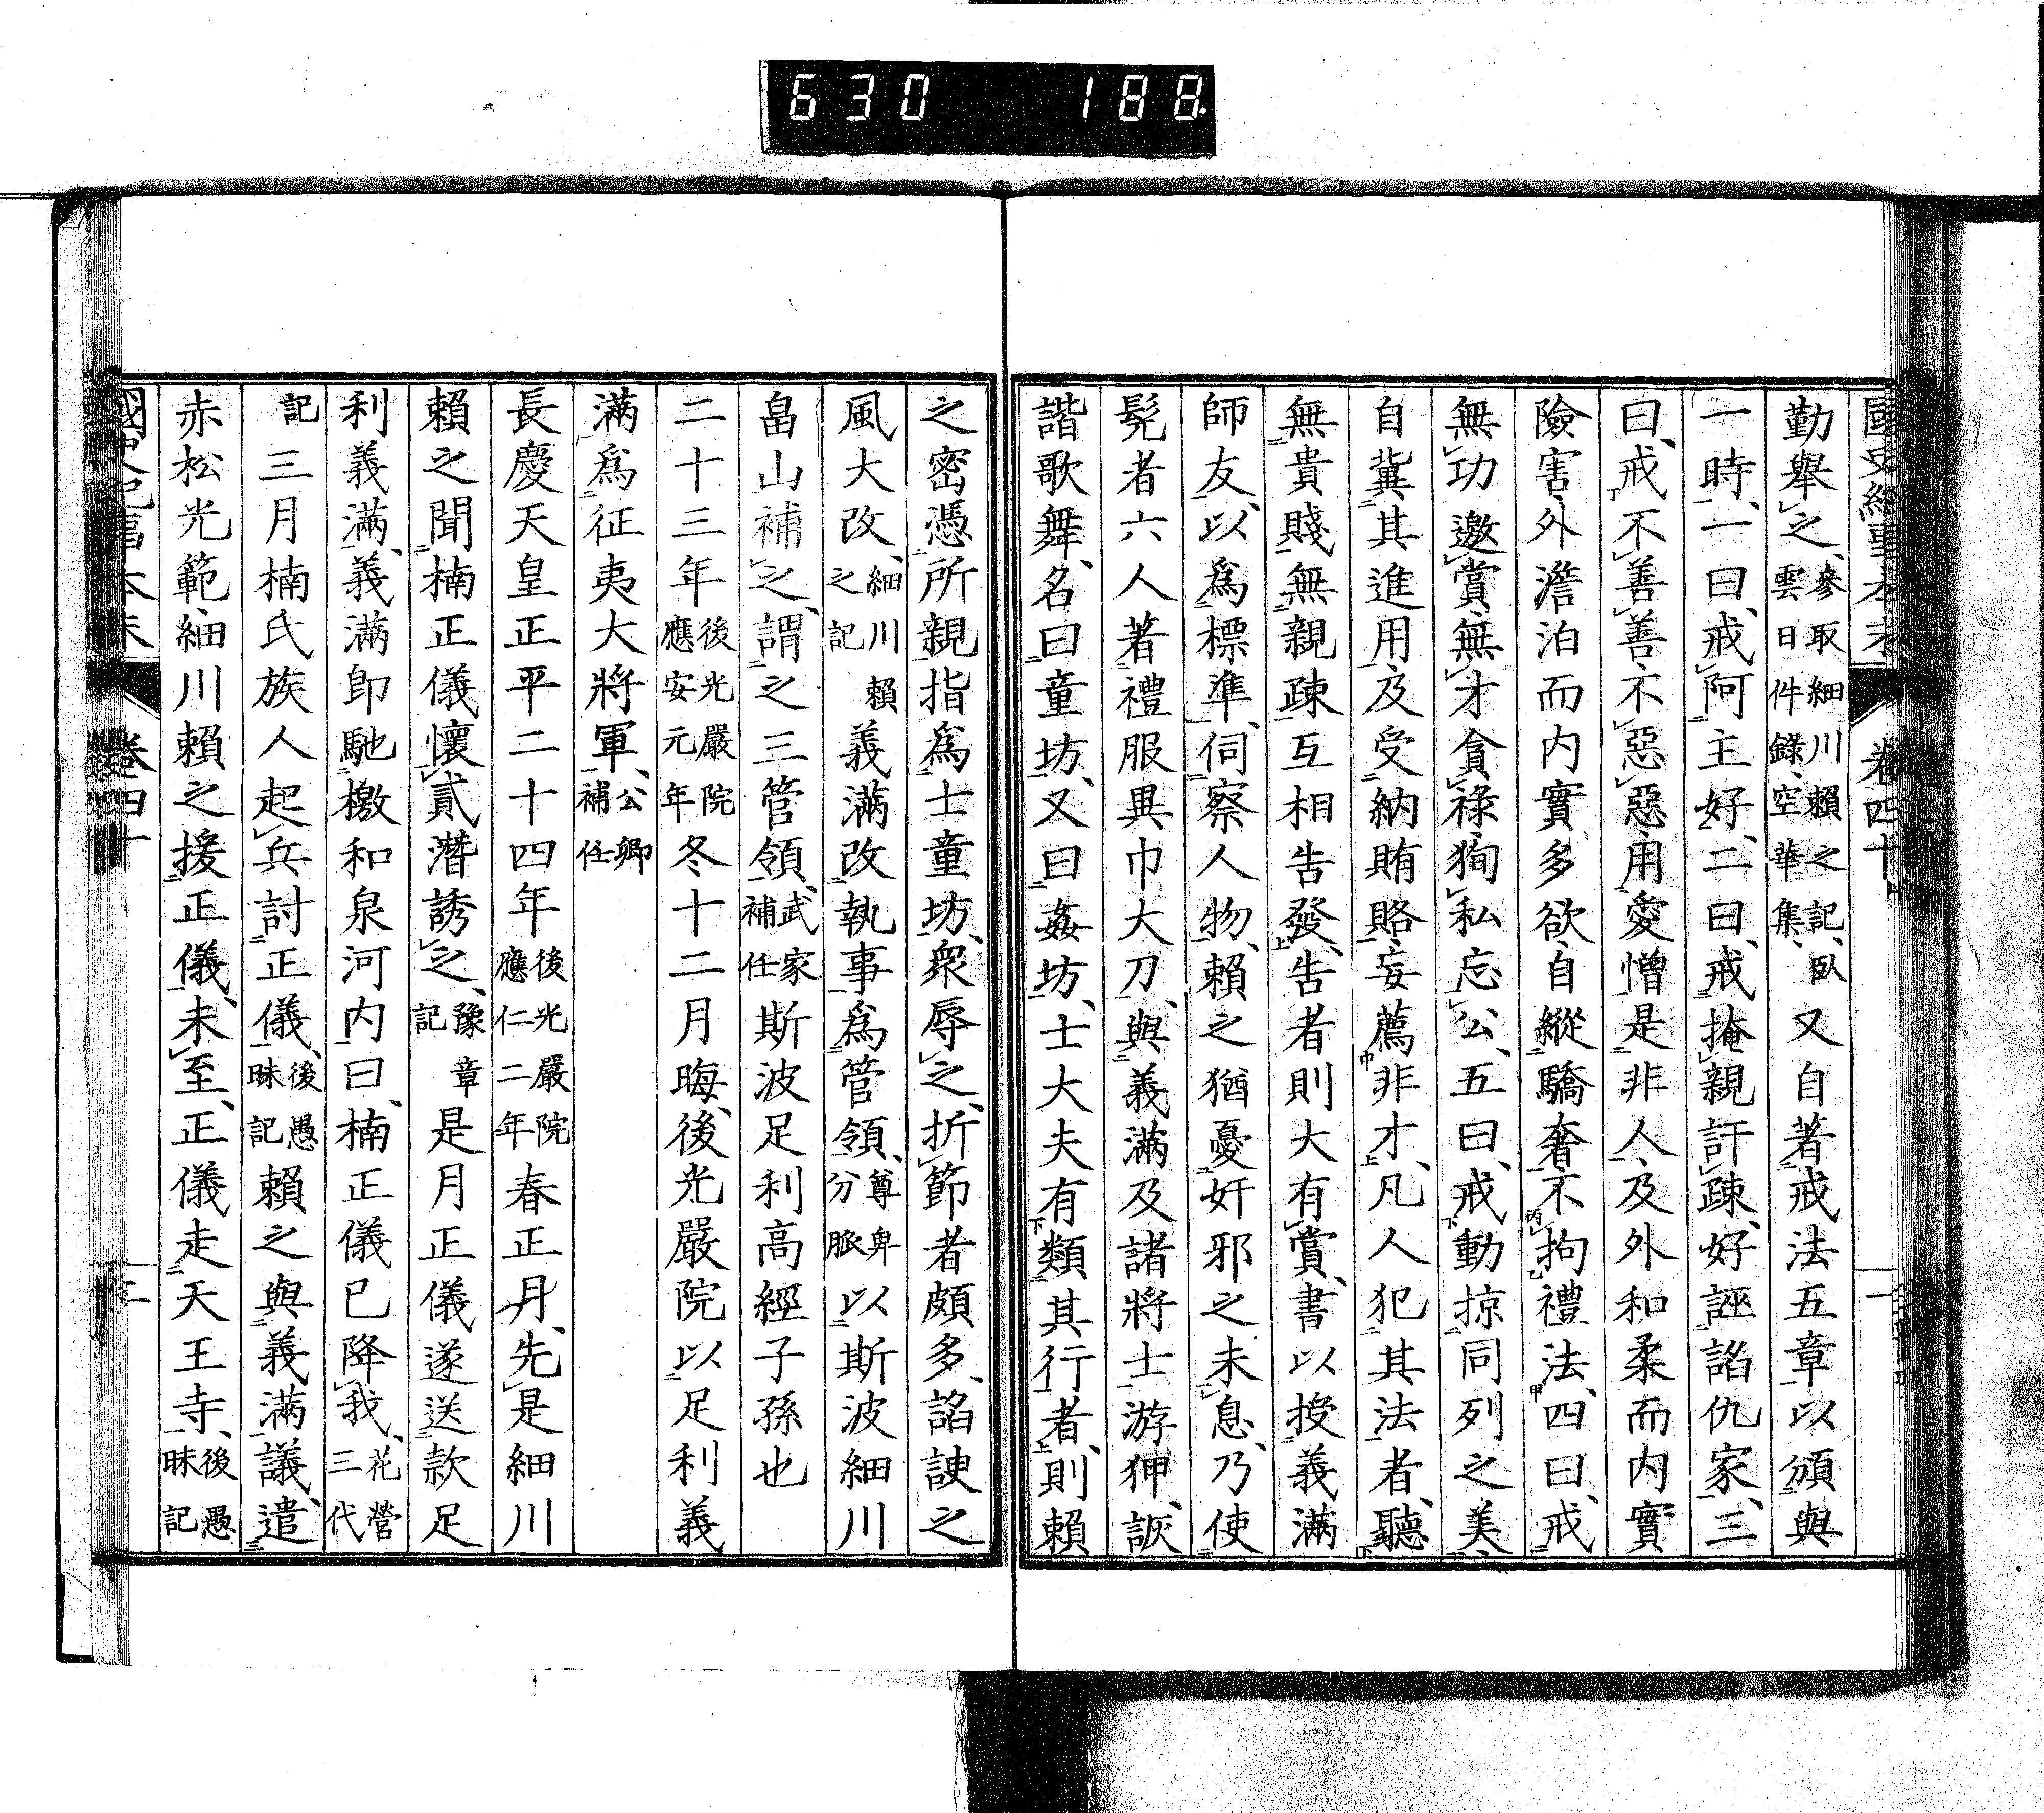 630 188
國史紀事本末 卷四十 一
勤舉之、參取細川賴之記、臥雲日件錄、空華集、又自著戒法五章以頒與
一時、一曰、戒阿主好、二曰、戒掩親訐疎、好誣諂仇家、三
曰、戒不善善不惡惡、用愛憎是非人、及外和柔而内實
險害、外澹泊而内實多欲、自縱驕奢、不拘禮法、四曰、戒
無功邀賞、無才貪祿、狥私忘公、五曰、戒動掠同列之美、
自冀其進用、及受納賄賂、妄薦非才、凡人犯其法者、聽
無貴賤、無親疎、互相告發、告者則大有賞、書以授義滿
師友、以爲標準、伺察人物、賴之猶憂奸邪之未息、乃使
髡者六人著禮服異巾大刀、與義滿及諸將士游狎、詼
諧歌舞、名曰童坊、又曰姦坊、士大夫有類其行者、則賴
之密憑所親指爲士童坊、衆辱之、折節者頗多、諂諛之
風大改、細川賴之記義滿改執事爲管領、尊卑分脈以斯波細川
畠山補之、謂之三管領、武家補任斯波足利高經子孫也
二十三年後光嚴院應安元年年冬十二月晦、後光嚴院以足利義
滿爲征夷大將軍、公卿補任
長慶天皇正平二十四年後光嚴院應仁二年年春正月、先是細川
賴之聞楠正儀懷貳潛誘之、豫章記是月正儀遂送款足
利義滿、義滿卽馳檄和泉河内曰、楠正儀已降我、花營三代
記三月楠氏族人起兵討正儀、後愚昧記賴之與義滿議、遣
赤松光範、細川賴之援正儀、未至、正儀走天王寺、後愚昧記
國史紀事本末 卷四十 二